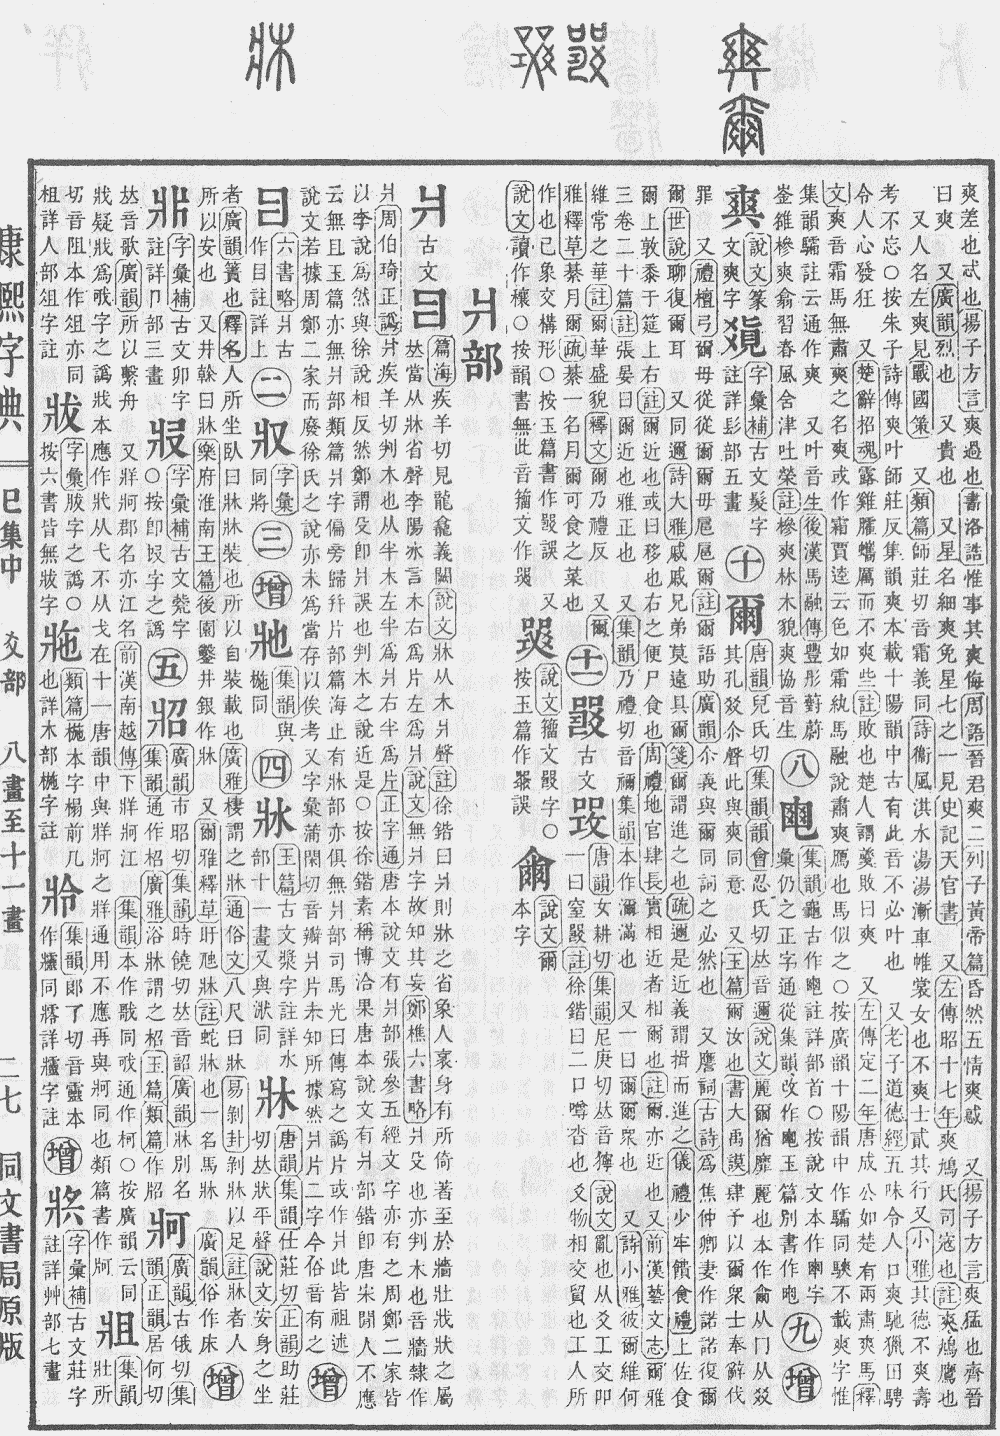 爽差也忒也揚子方言爽過也書洛誥惟事其爽侮周語晉君爽二列子黃帝篇昏然五情爽惑 又揚子方言爽猛也齊晉
曰爽 又廣韻烈也 又貴也 又星名細爽免星七之一見史記天官書 又左傳昭十七年爽鳩氏司寇也註爽鳩鷹也
又人名左爽見戰國策 又類篇師莊切音霜義同詩衞風淇水湯湯漸車帷裳女也不爽士貳其行又小雅其德不爽壽
考不忘○按朱子詩傳爽叶師莊反集韻爽本載十陽韻中古有此音不必叶也 又老子道德經五味令人口爽馳獵田騁
令人心發狂 又楚辭招魂露雞臛蠵厲而不爽些註敗也楚人謂羹敗曰爽 又左傳定二年唐成公如楚有兩肅爽馬釋
文爽音霜馬無肅爽之名爽或作霜賈逵云色如霜紈馬融說肅爽鴈也馬似之○按廣韻十陽韻中作驦同騻不載爽字惟
集韻驦註云通作爽 又叶音生後漢馬融傳豐彤對蔚
崟縒槮爽翕習春風含津吐榮註槮爽林木貌爽協音生
八
集韻龜古作 註詳部首○按說文本作 字
彙仍之正字通從集韻改作 玉篇別書作
九
增
說文篆
文爽字
字彙補古文髮字
註詳髟部五畫
十
爾
唐韻兒氏切集韻韻會忍氏切𠀤音邇說文麗爾猶靡麗也本作 从冂从㸚
其孔㸚尒聲此與爽同意 又玉篇爾汝也書大禹謨肆予以爾眾士奉辭伐
罪 又禮檀弓爾毋從從爾爾毋扈扈爾註爾語助廣韻尒義與爾同詞之必然也 又譍詞古詩爲焦仲卿妻作諾諾復爾
爾世說聊復爾耳 又同邇詩大雅戚戚兄弟莫遠具爾箋爾謂進之也疏邇是近義謂揖而進之儀禮少牢饋食禮上佐食
爾上敦黍于筵上右註爾近也或曰移也右之便尸食也周禮地官肆長實相近者相爾也註爾亦近也又前漢藝文志爾雅
三卷二十篇註張晏曰爾近也雅正也 又集韻乃禮切音禰集韻本作濔滿也 又一曰爾爾眾也 又詩小雅彼爾維何
維常之華註爾華盛貌釋文爾乃禮反 又爾
雅釋草綦月爾疏綦一名月爾可食之菜也
十一
古文
唐韻女耕切集韻尼庚切𠀤音儜說文亂也从爻工交吅
一曰窒 註徐鍇曰二口噂沓也爻物相交質也工人所
作也己象交構形○按玉篇書作 誤 又
說文讀作穰○按韻書無此音籀文作
說文籀文 字○
按玉篇作 誤
說文爾
本字
爿部
爿
古文
篇海疾羊切見龍龕義闕說文牀从木爿聲註徐鍇曰爿則牀之省象人衺身有所倚著至於牆壯戕狀之屬
𠀤當从牀省聲李陽冰言木右爲片左爲爿說文無爿字故知其妄鄭樵六書略爿殳也亦判木也音牆隸作
爿周伯琦正譌爿疾羊切判木也从半木左半爲爿右半爲片正字通唐本說文有爿部張參五經文字亦有之周鄭二家皆
以李說爲然與徐說相反然鄭謂殳卽爿誤也判木之說近是○按徐鍇素稱博洽果唐本說文有爿部鍇卽唐宋閒人不應
云無且玉篇亦無爿部類篇爿字偏旁歸爿片部篇海止有牀部亦俱無爿部司馬光曰傳寫之譌片或作爿此皆祖述
說文若據周鄭二家而廢徐氏之說亦未爲當存以俟考 又字彙蒲閑切音瓣爿片未知所據然爿片二字今俗音有之
增
六書略爿古
作 註詳上
二
字彙
同將
三
增
集韻與
椸同
四
牀
玉篇古文漿字註詳水
部十一畫又與狀同
牀
唐韻集韻仕莊切正韻助莊
切𠀤狀平聲說文安身之坐
者廣韻簀也釋名人所坐臥曰牀牀裝也所以自裝載也廣雅棲謂之牀通俗文八尺曰牀易剝卦剝牀以足註牀者人
所以安也 又井榦曰牀樂府淮南王篇後園鑿井銀作牀 又爾雅釋草盱虺牀註蛇牀也一名馬牀 廣韻俗作床
增
字彙補古文卯字
註詳卩部三畫
字彙補古文斃字
○按卽 字之譌
五
牊
廣韻市昭切集韻時饒切𠀤音韶廣韻牀別名
集韻通作柖廣雅浴牀謂之柖玉篇類篇作牊
牁
廣韻古俄切集
韻正韻居何切
𠀤音歌廣韻所以繫舟 又牂牁郡名亦江名前漢南越傳下牂牁江 集韻本作歌同戨通作柯○按廣韻云同
戕疑戕爲戨字之譌戕本應作牫从弋不从戈在十一唐韻中與牂牁之牂通用不應再與牁同也類篇書作牁
牀
集韻
壯所
切音阻本作俎亦同
柤詳人部俎字註
字彙 字之譌○
按六書皆無 字
類篇椸本字榻前几
也詳木部椸字註
集韻郞了切音靈本
作 同 詳 字註
增
字彙補古文莊字
註詳艸部七畫
康熙字典
巳集中
爻部 八畫至十一畫
二七
同文書局原版